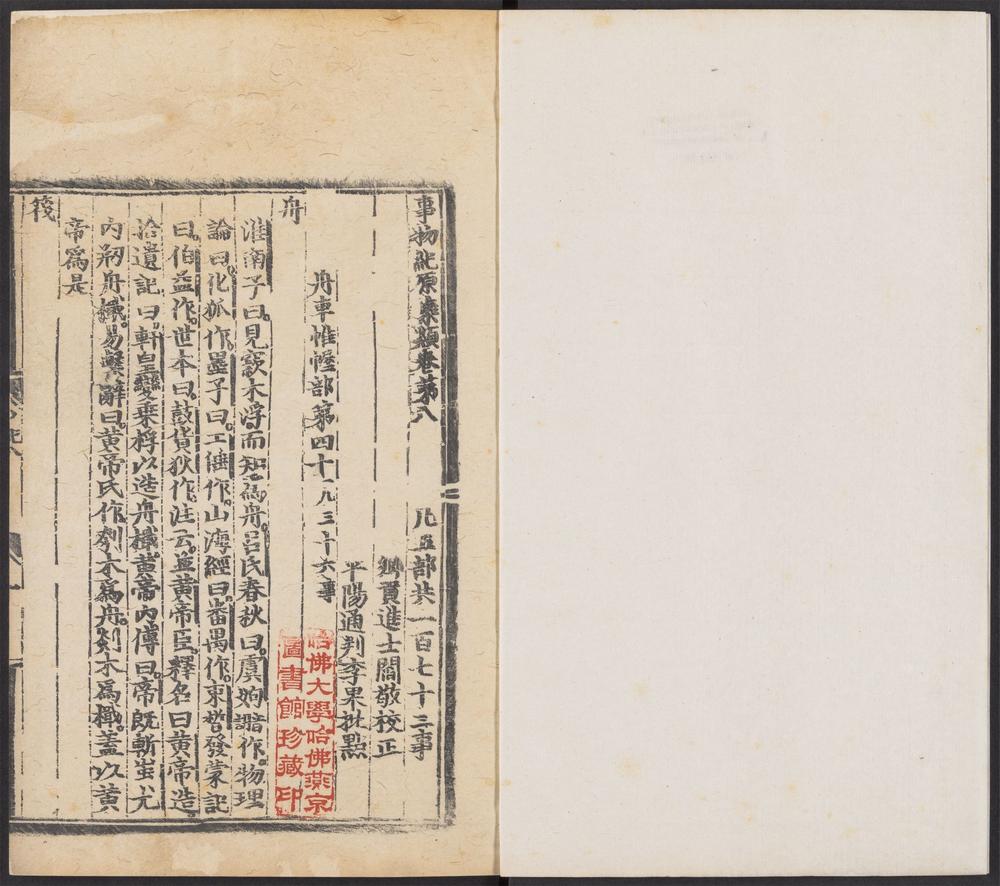 事物紀原集類卷第八　凡五部共一百七十三事
鄉貢進士閻敬校正
平陽通判李果批點
舟車帷幄部第四十凡三十六事
舟
淮南子曰見窾木浮而知為舟呂氏春秋曰虞姁諧作物理
論曰化狐作墨子曰工倕作山海經曰番禺作束皙發蒙記
曰伯益作世本曰鼓貨狄作注云並黃帝臣釋名曰黃帝造
拾遺記曰軒皇變乘桴以造舟檝黃帝內傳曰帝既斬蚩尤
內刱舟檝易繫辭曰黃帝氏作刳木爲舟剡木爲檝蓋以黃
帝爲是
筏
哈佛大學哈佛燕京
圖書館珍藏印